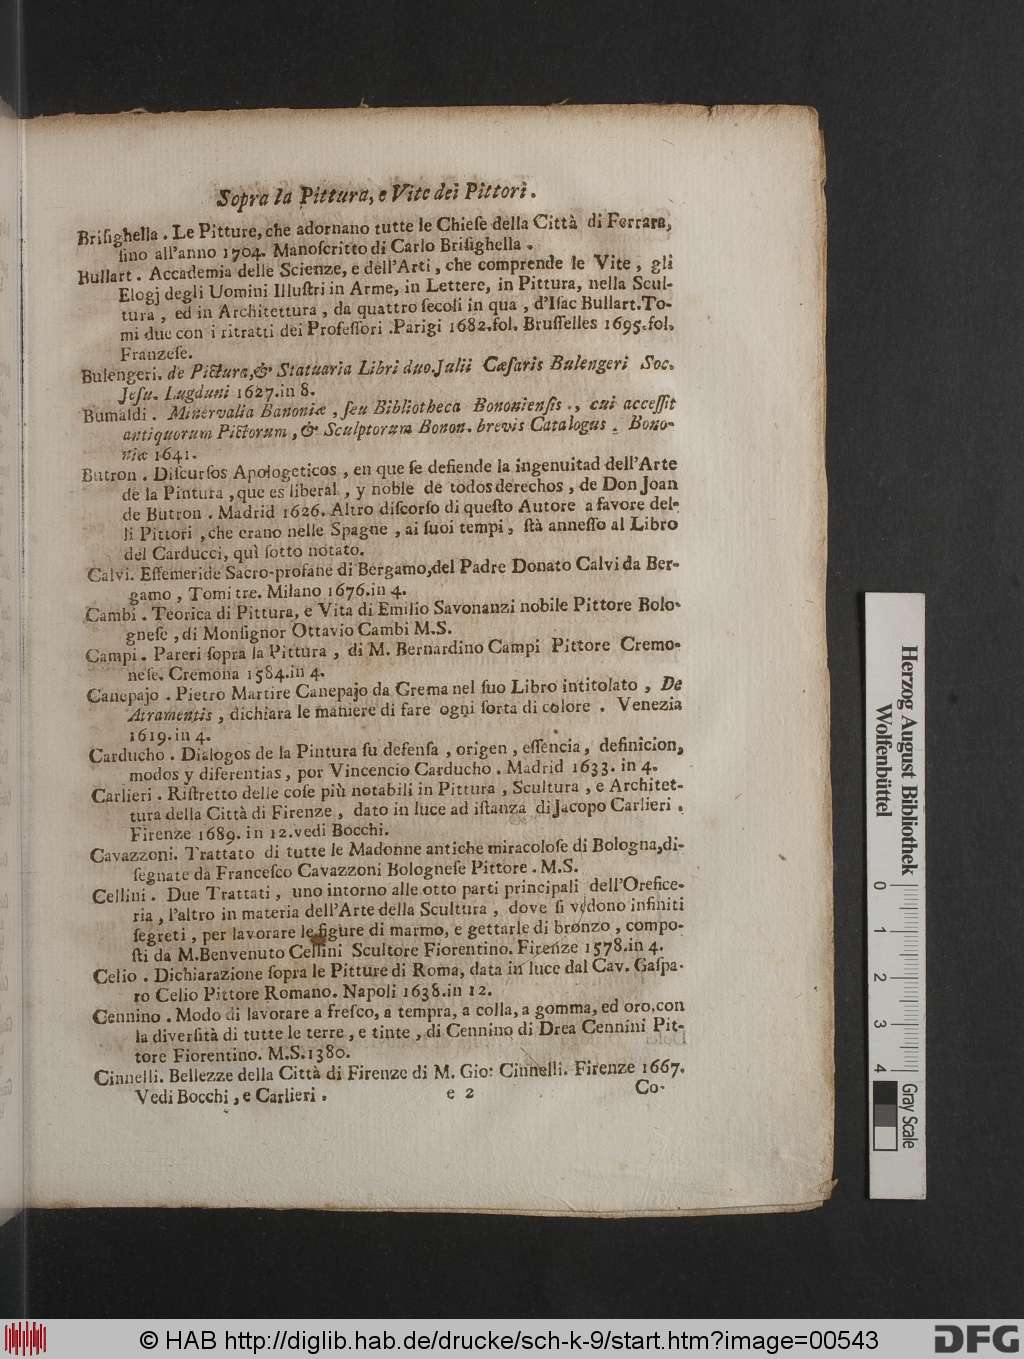 Sopra la Pittura, e Vite dei Pittori.
Briſighella. Le Pitture, che adornano tutte le Chieſe della Città di Ferrara,
ſino all'anno 1704. Manoſcritto di Carlo Briſighella.
Bullart. Accademia delle Scienze, e dell'Arti, che comprende le Vite, gli
Elogj degli Uomini Illuſtri in Arme, in Lettere, in Pittura, nella Scul-
tura, ed in Architettura, da quattro ſecoli in qua, d'Iſac Bullart. To-
mi due con i ritratti dei Profeſſori. Parigi 1682. fol. Bruſſelles 1695. fol.
Franzeſe.
Bulengeri. de Pictura, & Statuaria Libri duo. Julii Cæſaris Bulengeri Soc.
Jeſu. Lugduni 1627. in 8.
Bumaldi. Minervalia Banoniæ, ſeu Bibliotheca Bononienſis., cui acceſſit
antiquorum Pictorum, & Sculptorum Bonon. brevis Catalogus. Bono-
niæ 1641.
Butron. Diſcurſos Apologeticos, en que ſe defiende la ingenuitad dell'Arte
de la Pintura, que es liberal, y noble de todos derechos, de Don Joan
de Butron. Madrid 1626. Altro diſcorſo di queſto Autore a favore del-
li Pittori, che erano nelle Spagne, ai ſuoi tempi, ſtà anneſſo al Libro
del Carducci, quì ſotto notato.
Calvi. Effemeride Sacro-profane di Bergamo, del Padre Donato Calvi da Ber-
gamo, Tomi tre. Milano 1676. in 4.
Cambi. Teorica di Pittura, e Vita di Emilio Savonanzi nobile Pittore Bolo-
gneſe, di Monſignor Ottavio Cambi M.S.
Campi. Pareri ſopra la Pittura, di M. Bernardino Campi Pittore Cremo-
neſe. Cremona 1584. in 4.
Canepajo. Pietro Martire Canepajo da Crema nel ſuo Libro intitolato, De
Atramentis, dichiara le maniere di fare ogni ſorta di colore. Venezia
1619. in 4.
Carducho. Dialogos de la Pintura ſu defenſa, origen, eſſencia, definicion,
modos y diferentias, por Vincencio Carducho. Madrid 1633. in 4.
Carlieri. Riſtretto delle coſe più notabili in Pittura, Scultura, e Architet-
tura della Città di Firenze, dato in luce ad iſtanza di Jacopo Carlieri.
Firenze 1689. in 12. vedi Bocchi.
Cavazzoni. Trattato di tutte le Madonne antiche miracoloſe di Bologna, di-
ſegnate da Franceſco Cavazzoni Bologneſe Pittore. M.S.
Cellini. Due Trattati, uno intorno alle otto parti principali dell'Orefice-
ria, l'altro in materia dell'Arte della Scultura, dove ſi vedono infiniti
ſegreti, per lavorare le figure di marmo, e gettarle di bronzo, compo-
ſti da M. Benvenuto Cellini Scultore Fiorentino. Firenze 1578. in 4.
Celio. Dichiarazione ſopra le Pitture di Roma, data in luce dal Cav. Gaſpa-
ro Celio Pittore Romano. Napoli 1638. in 12.
Cennino. Modo di lavorare a freſco, a tempra, a colla, a gomma, ed oro, con
la diverſità di tutte le terre, e tinte, di Cennino di Drea Cennini Pit-
tore Fiorentino. M.S. 1380.
Cinnelli. Bellezze della Città di Firenze di M. Gio: Cinnelli. Firenze 1667.
Vedi Bocchi, e Carlieri.
e 2
Co-
Herzog August Bibliothek
Wolfenbüttel
0 1 2 3 4
Gray Scale
© HAB http://diglib.hab.de/drucke/sch-k-9/start.htm?image=00543
DFG